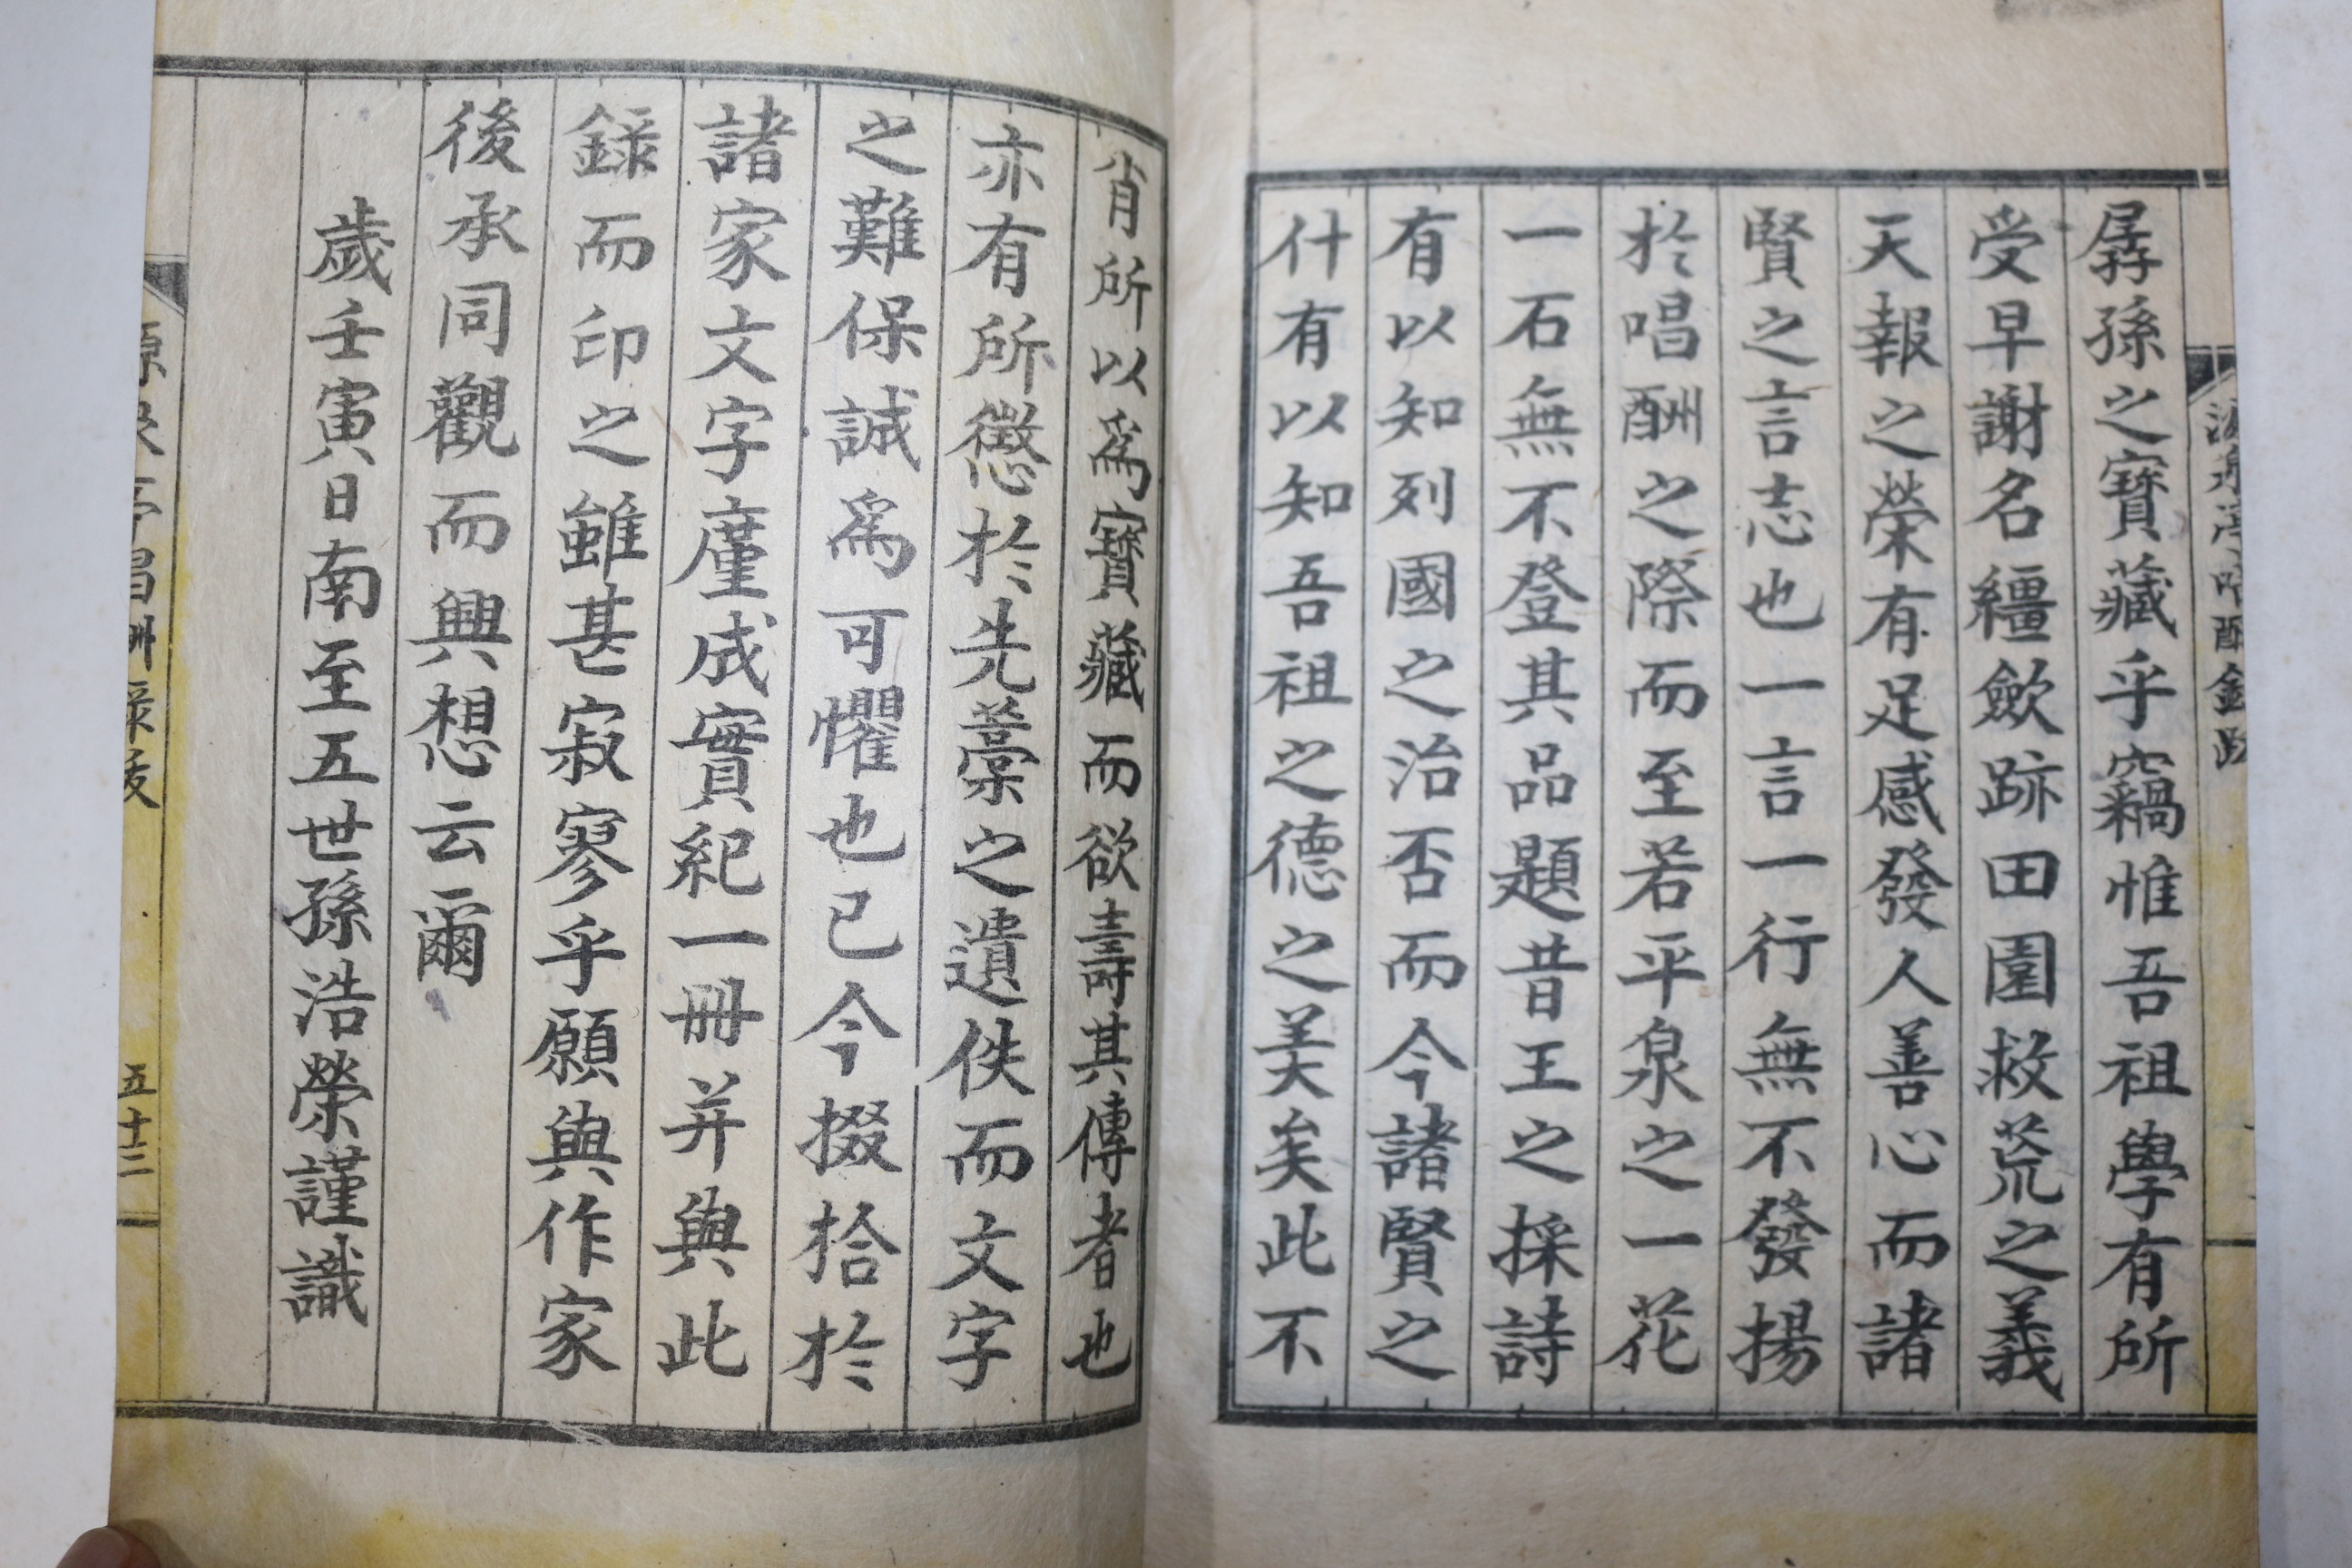 孱孫之寶藏乎竊惟吾祖學有所
受早謝名繮斂跡田園救荒之義
天報之榮有足感發人善心而諸
賢之言志也一言一行無不發揚
於唱酬之際而至若平泉之一花
一石無不登其品題昔王之採詩
有以知列國之治否而今諸賢之
什有以知吾祖之德之美矣此不
肖所以爲寶藏而欲壽其傳者也
亦有所懲於先藁之遺佚而文字
之難保誠爲可懼也已今掇拾於
諸家文字廑成實紀一冊并與此
錄而印之雖甚寂寥乎願與作家
後承同觀而興想云爾
歲壬寅日南至五世孫浩榮謹識
五十二